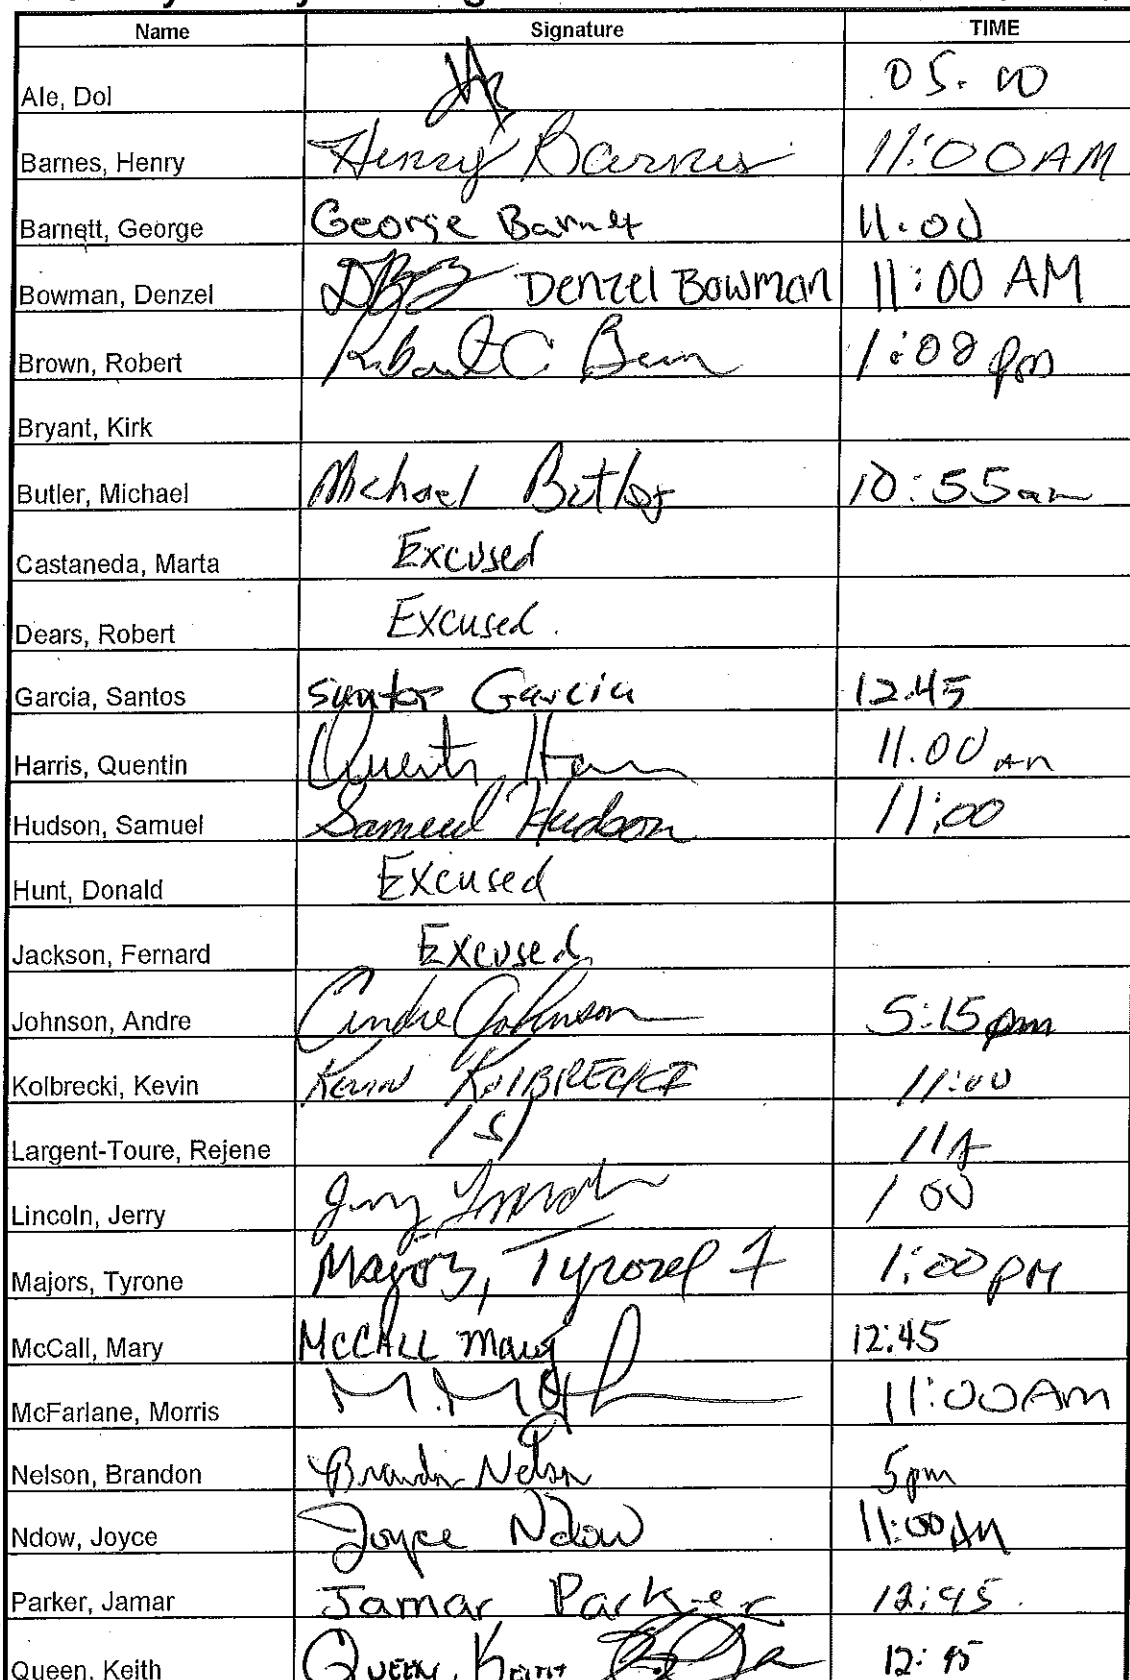 Name Signature TIME
Ale, Dol 05.00
Barnes, Henry Henry Barnes 11:00AM
Barnett, George George Barnett 11.00
Bowman, Denzel DB Denzel Bowman 11:00 AM
Brown, Robert Robert C. Brown 1:08 pm
Bryant, Kirk
Butler, Michael Michael Butler 10:55am
Castaneda, Marta Excused
Dears, Robert Excused.
Garcia, Santos Santos Garcia 12.45
Harris, Quentin Quentin Harris 11.00 am
Hudson, Samuel Samuel Hudson 11:00
Hunt, Donald Excused
Jackson, Fernard Excused
Johnson, Andre Andre Johnson 5:15pm
Kolbrecki, Kevin Kevin KolBRECKI 11:00
Largent-Toure, Rejene /S/ 11A
Lincoln, Jerry Jerry Lincoln 1 00
Majors, Tyrone Majors, Tyrone 1:00 PM
McCall, Mary McCALL Mary 12:45
McFarlane, Morris 11:00AM
Nelson, Brandon Brandon Nelson 5pm
Ndow, Joyce Joyce Ndow 11:00 AM
Parker, Jamar Jamar Parker 12:45
Queen, Keith Queen, Keith 12:45